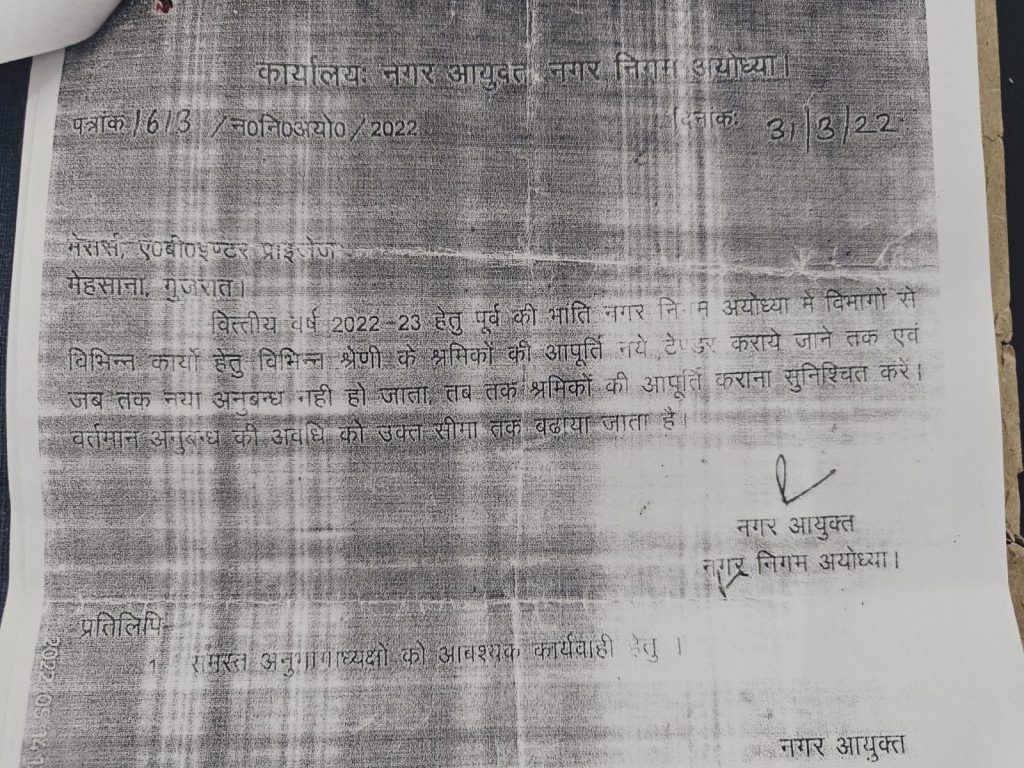 कार्यालयः नगर आयुक्त, नगर निगम अयोध्या।
पत्रांक 1613 /न०नि०अयो० / 2022 दिनांकः 31/3/22
मेसर्स, ए०बी०इण्टर प्राइजेज
मेहसाना, गुजरात।
वित्तीय वर्ष 2022-23 हेतु पूर्व की भांति नगर निगम अयोध्या में विभागों से
विभिन्न कार्यो हेतु विभिन्न श्रेणी के श्रमिकों की आपूर्ति नये टेण्डर कराये जाने तक एवं
जब तक नया अनुबन्ध नही हो जाता, तब तक श्रमिकों की आपूर्ति कराना सुनिश्चित करें।
वर्तमान अनुबन्ध की अवधि को उक्त सीमा तक बढाया जाता है।
नगर आयुक्त
नगर निगम अयोध्या।
प्रतिलिपि-
1. समस्त अनुभागाध्यक्षो को आवश्यक कार्यवाही हेतु ।
नगर आयुक्त